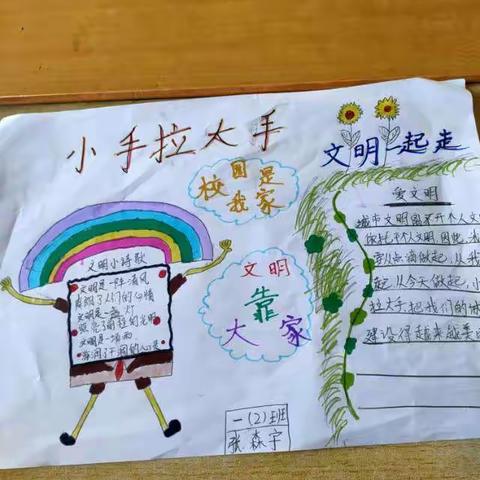 小手拉大手
文明一起走
校园是
我家
文明
靠
大家
文明小诗歌
文明是一阵清风
文明是一盏灯
文明是一场雨
爱文明
城市文明离不开个人文
个人文明,因此,
点滴做起,从我
起,从今天做起,小
拉大手,把我们的
建设得越来越美
一(2)班
张森宇